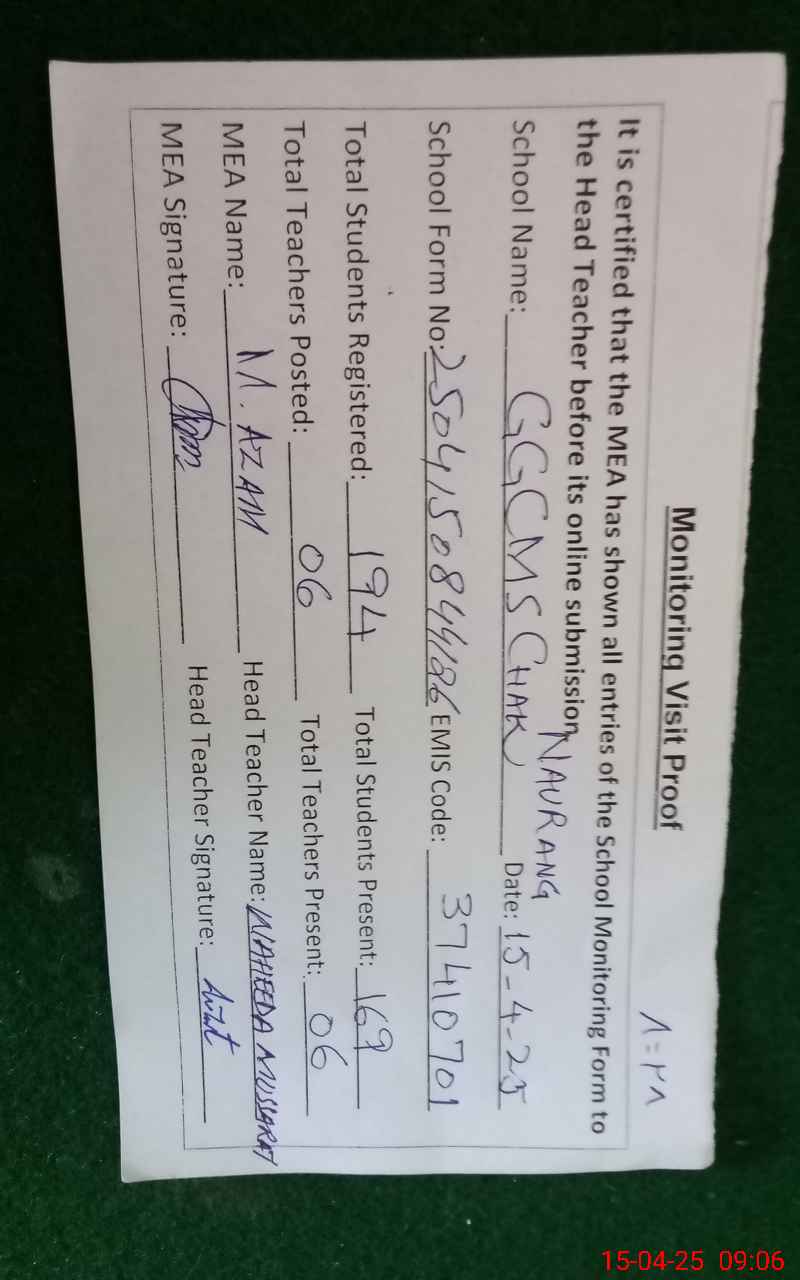 Monitoring Visit Proof
٨=٣٨
It is certified that the MEA has shown all entries of the School Monitoring Form to
the Head Teacher before its online submission.
School Name: GGCMS CHAK NAURANG Date: 15-4-25
School Form No: 2504150844186 EMIS Code: 37410701
Total Students Registered: 194 Total Students Present: 169
Total Teachers Posted: 06 Total Teachers Present: 06
MEA Name: M. AZAM Head Teacher Name: WAHEEDA MUSSARAT
MEA Signature: Head Teacher Signature:
15-04-25 09:06